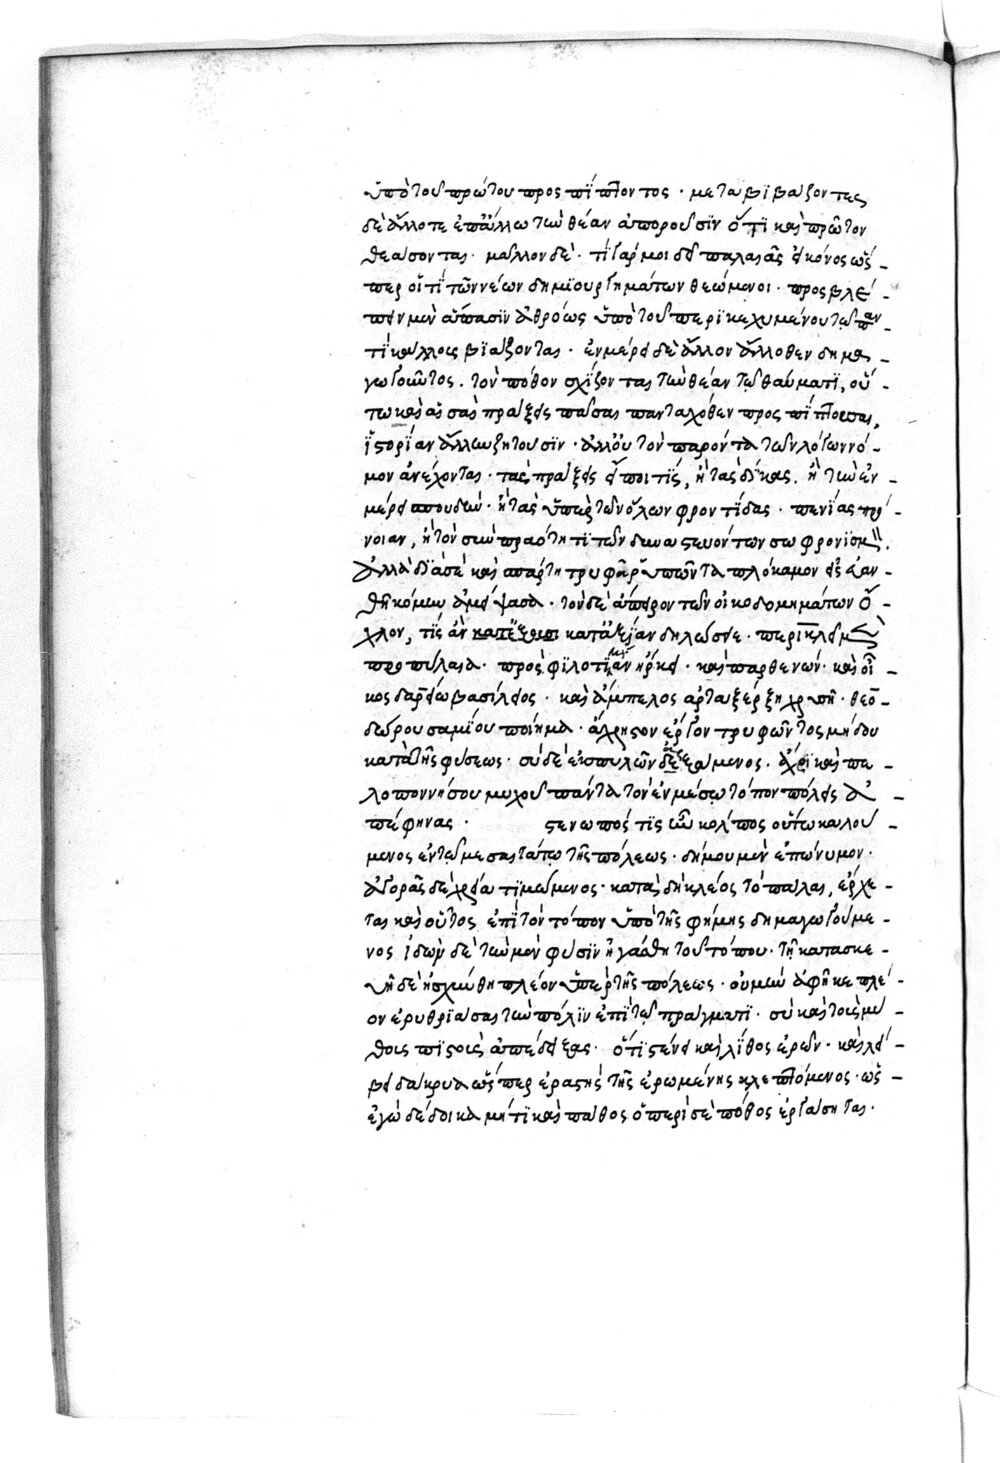 ὑπὸ τοῦ πρώτου προσπίπτοντος · μεταβιβάζοντες
δὲ ἄλλοτε ἐπ' ἄλλω τὴν θέαν ἀποροῦσιν ὅ,τι καὶ πρῶτον
θεάσονται · μᾶλλον δὲ · τί γάρ μοι δεῖ παλαιᾶς εἰκόνος ὥσ-
περ οἵ τι τῶν νέων δημιουργημάτων θεώμενοι · προσβλέ-
πειν μὲν ἅπασιν ἀθρόως ὑπὸ τοῦ περικεχυμένου τῶ παν-
τὶ κάλλους βιάζονται · ἐν μέρει δὲ ἄλλον ἄλλοθεν δημα-
γωγοῦντος . τὸν πόθον σχίζονται τὴν θέαν τῶ θαύματι, οὕ-
τω καὶ αἱ σαὶ πράξεις πᾶσαι πανταχόθεν προσπίπτουσαι,
ἱστορίαν ἄλλην ζητοῦσιν · ἀλλ' οὐ τὸν παρόντα τῶν λόγων νό-
μον ἀνέχονται · τὰς πράξεις εἴποι τίς, ἢ τὰς δίκας . ἢ τὴν ἐν
μέρει σπουδὴν · ἢ τὰς ὑπὲρ τῶν ὅλων φροντίδας · πενίας πρό-
νοιαν, ἢ τὸν σὺν πραότητι τῶν δυναστευόντων σωφρονισμόν .
ἀλλὰ διὰ σὲ καὶ σπάρτη τρυφᾶ ῥυπῶντα πλόκαμον εἰς ἐαν-
θῆ κόμην ἀμείψασα · τὸν δὲ ἄπειρον τῶν οἰκοδομημάτων ὄ-
χλον, τίς ἂν κατ' ἀξίαν δηλώσειε · περικλεῖ μὲν
προπύλαια · πρὸς φιλοτιμίαν ἤρκει · καὶ παρθενών · καὶ οἶ-
κος δαρείω βασιλεῖος · καὶ ἄμπελος ἀρταξέρξη χρυσῆ · θεο-
δώρου σαμίου ποίημα · ἄχρηστον ἔργον τρυφῶντος μήδου
κατὰ τῆς φύσεως · σὺ δὲ ἐκ πυλῶν δεξάμενος . ἄχρι καὶ πε-
λοποννήσου μυχοῦ πάντα τὸν ἐν μέσω τόπον πόλεις ἀ-
πέφηνας · στενωπός τις ὢν κολπὸς οὕτω καλού-
μενος ἐν τῶ μεσαιτάτω τῆς πόλεως · δήμου μὲν ἐπώνυμον ·
ἀγορᾶς δὲ χρεία τιμώμενος · κατὰ δὴ κλέος τὸ πάλαι, ἔρχε-
ται καὶ οὗτος ἐπὶ τὸν τόπον ὑπὸ τῆς φήμης δημαγωγούμε-
νος ἰδὼν δὲ τὴν μὲν φύσιν ἠγάσθη τοῦ τόπου · τῆ κατασκε-
υῆ δὲ ἠσχύνθη πλέον ὑπὲρ τῆς πόλεως · οὐ μὴν ἀφῆκε πλέ-
ον ἐρυθριάσας τὴν πόλιν ἐπὶ τῶ πράγματι · σὺ καὶ τοῖς μύ-
θοις πιστοὺς ἀπέδειξας · ὅτι στένει καὶ λίθος ἐρῶν · καὶ λεί-
βει δάκρυα ὥσπερ ἐραστὴς τῆς ἐρωμένης κλεπτόμενος · ὡς
ἐγὼ δέδοικα μή τι καὶ πάθος ὁ περὶ σὲ πόθος ἐργάσηται ·